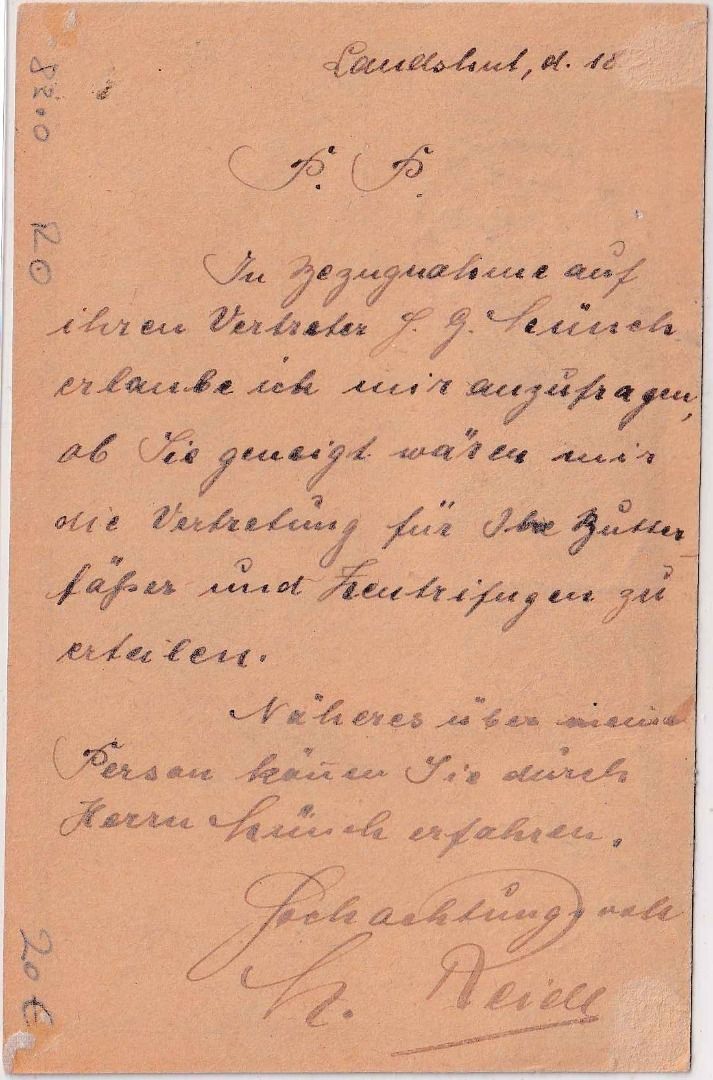 Landshut, d. 18
P. P.
In Bezugnahme auf
ihren Vertreter J. G. Münch
erlaube ich mir anzufragen,
ob Sie geneigt wären mir
die Vertretung für Ihre Butter-
fäßer und Zentrifugen zu
erteilen.
Näheres über meine
Person können Sie durch
Herrn Münch erfahren.
Hochachtungsvoll
M. Reidl
8200 20
20 €